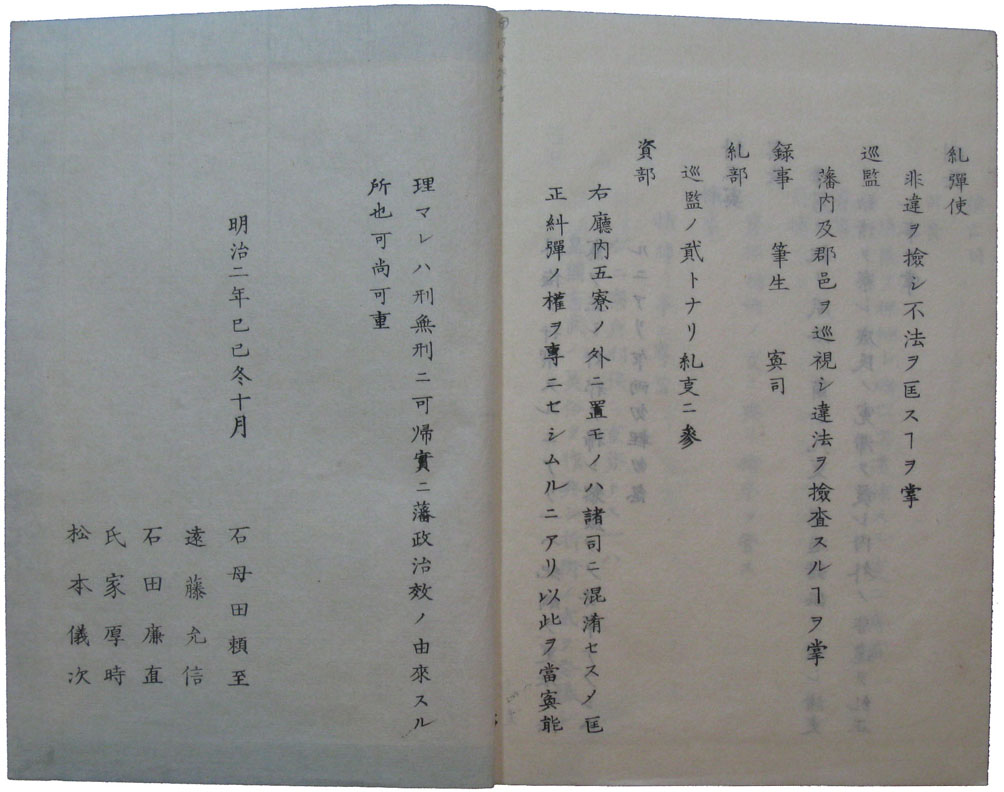 糺彈使
非違ヲ撿シ不法ヲ匡スヿヲ掌
巡監
藩内及郡邑ヲ巡視シ違法ヲ撿査スルヿヲ掌
録事 筆生 寅司
糺部
巡監ノ貳トナリ糺㕝ニ參
資部
右廳内五寮ノ外ニ置モノハ諸司ニ混淆セスメ匡
正糾彈ノ權ヲ專ニセシムルニアリ以此ヲ當寅能
理マレハ刑無刑ニ可帰實ニ藩政治效ノ由來スル
所也可尚可重
明治二年巳己冬十月
石母田頼至
遠藤允信
石田廉直
氏家厚時
松本儀次